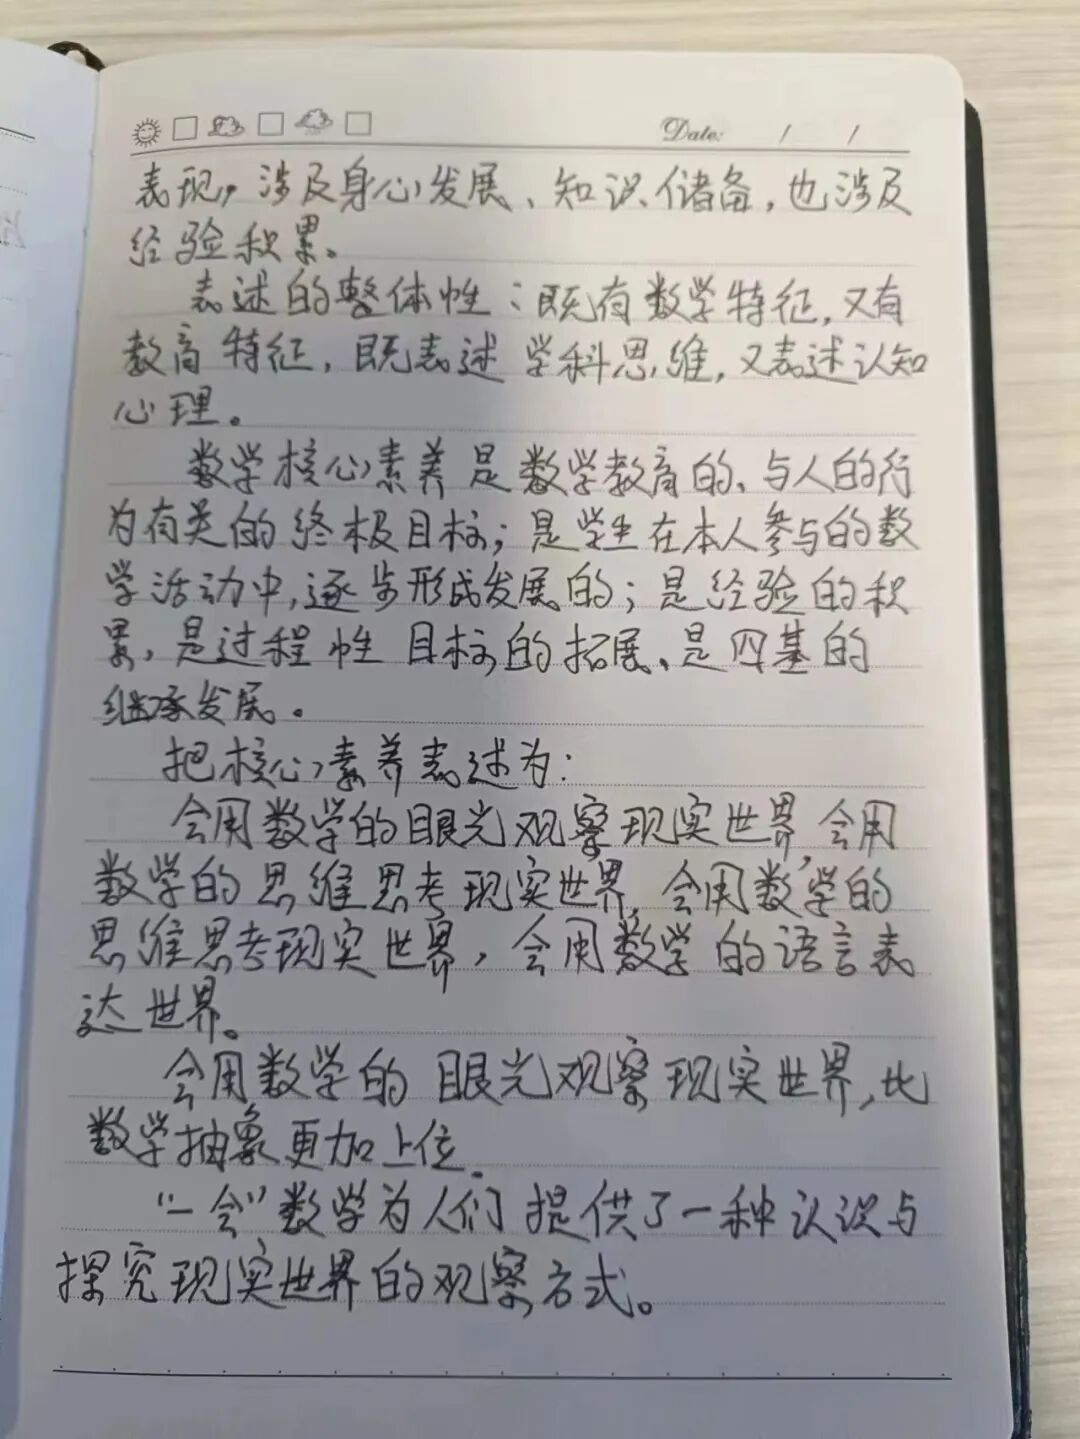 Date: / /
表现，涉及身心发展、知识储备，也涉及
经验积累。
表述的整体性：既有数学特征，又有
教育特征，既表述学科思维，又表述认知
心理。
数学核心素养是数学教育的、与人的行
为有关的终极目标；是学生在本人参与的数
学活动中，逐步形成发展的；是经验的积
累，是过程性目标的拓展、是四基的
继承发展。
把核心素养表述为：
会用数学的眼光观察现实世界，会用
数学的思维思考现实世界，会用数学的
思维思考现实世界，会用数学的语言表
达世界。
会用数学的眼光观察现实世界，比
数学抽象更加上位．
“一会”数学为人们提供了一种认识与
探究现实世界的观察方式。